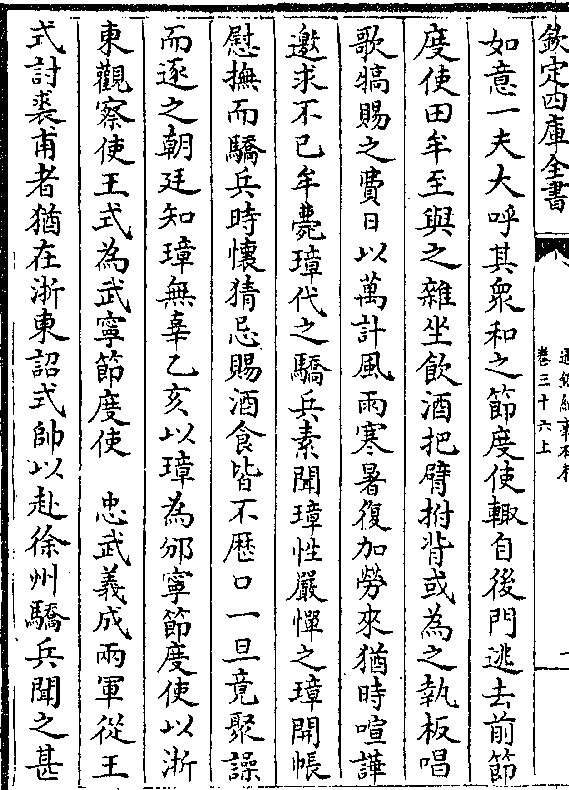 欽定四庫全書
通鑑紀事本末
卷三十六上
如意一夫大呼其衆和之節度使輙自後門逃去前節
度使田牟至與之雜坐飲酒把臂拊背或為之執板唱
歌犒賜之費日以萬計風雨寒暑復加勞來猶時喧譁
邀求不已牟薨璋代之驕兵素聞璋性嚴憚之璋開帳
慰撫而驕兵時懷猜忌賜酒食皆不歴口一旦竟聚譟
而逐之朝廷知璋無辜乙亥以璋為邠寧節度使以浙
東觀察使王式為武寧節度使　忠武義成兩軍從王
式討裘甫者猶在浙東詔式帥以赴徐州驕兵聞之甚